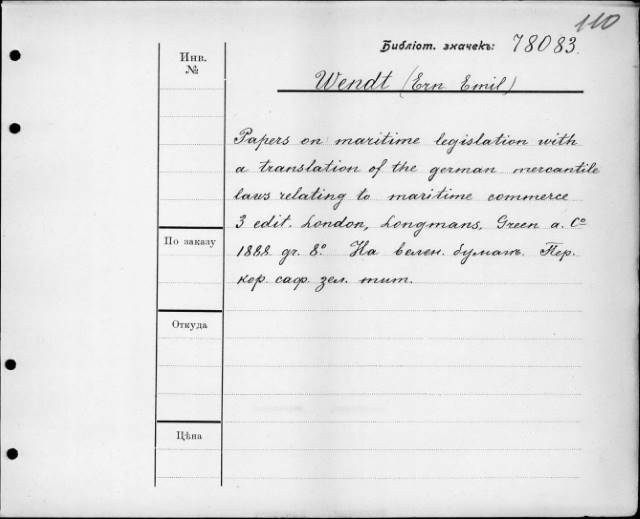 110
Библіот. значекъ: 78083.
Инв.
№
Wendt (Ern Emil)
Papers on maritime legislation with
a translation of the german mercantile
laws relating to maritime commerce
3 edit. London, Longmans, Green a. Cº
1888 gr. 8º. На велен. бумагѣ. Пер.
кор. саф. зел. тит.
По заказу
Откуда
Цѣна